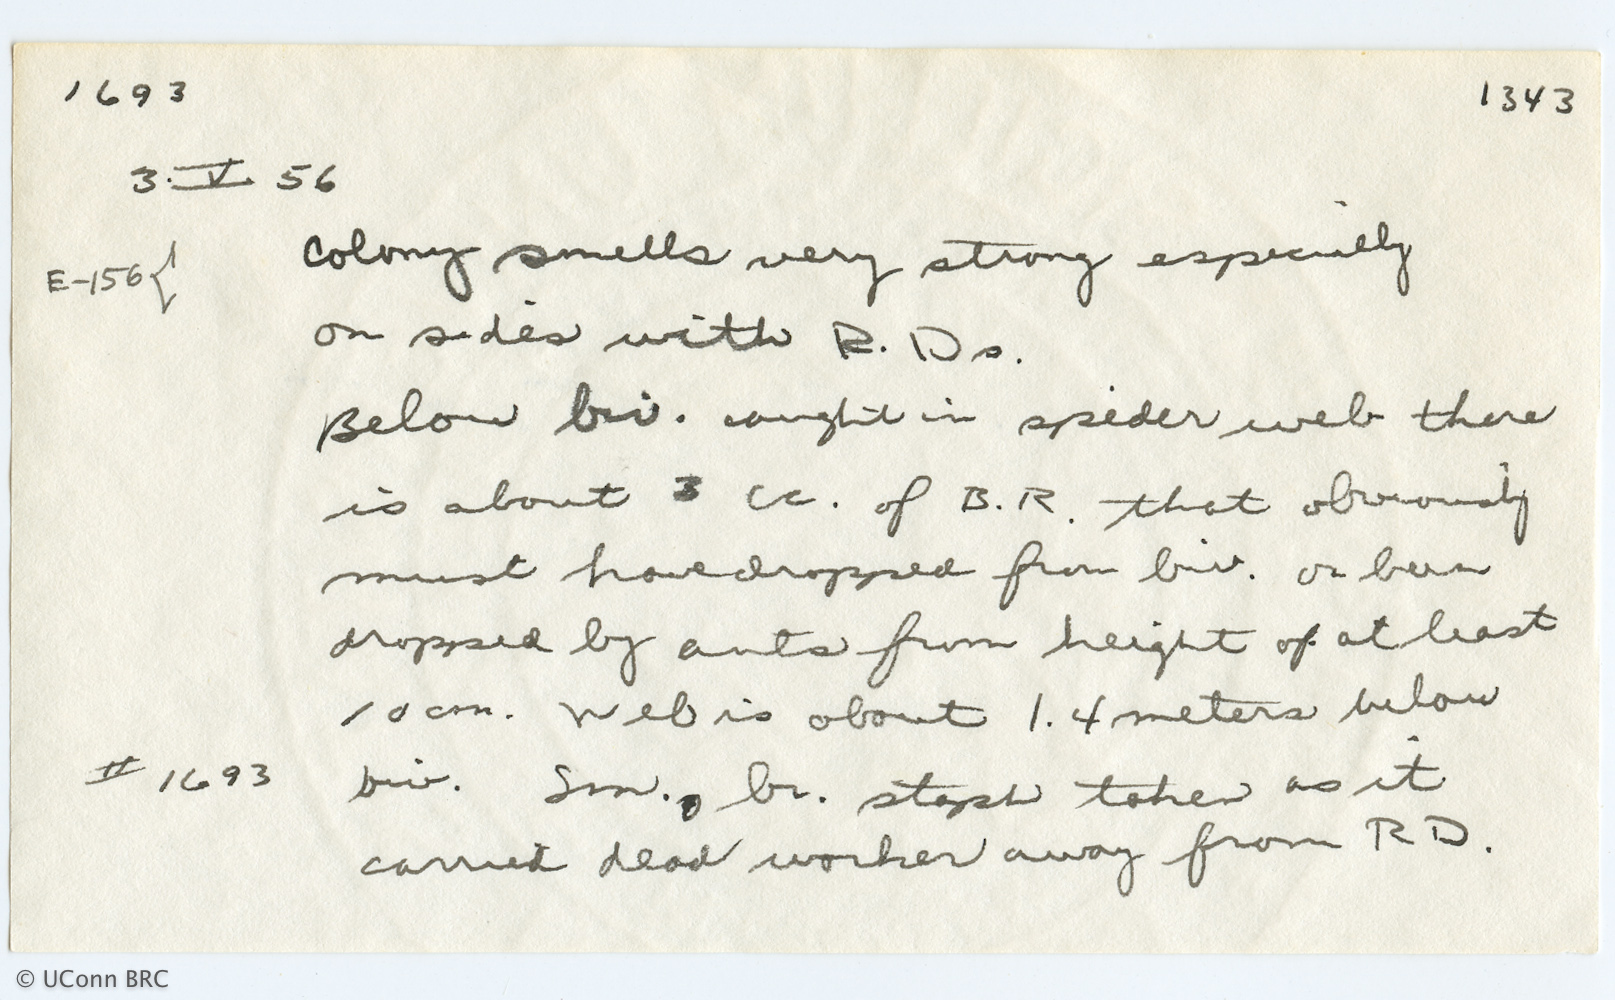 1693 1343
3·V· 56
E-156{ Colony smells very strong especially
on sides with R. Ds.
Below biv. caught in spider web there
is about 3 cc. of B.R. that obviously
must have dropped from biv. or been
dropped by ants from height of at least
10 cm. Web is about 1.4 meters below
# 1693 biv. Sm., br. staph taken as it
carried dead worker away from R D.
© UConn BRC